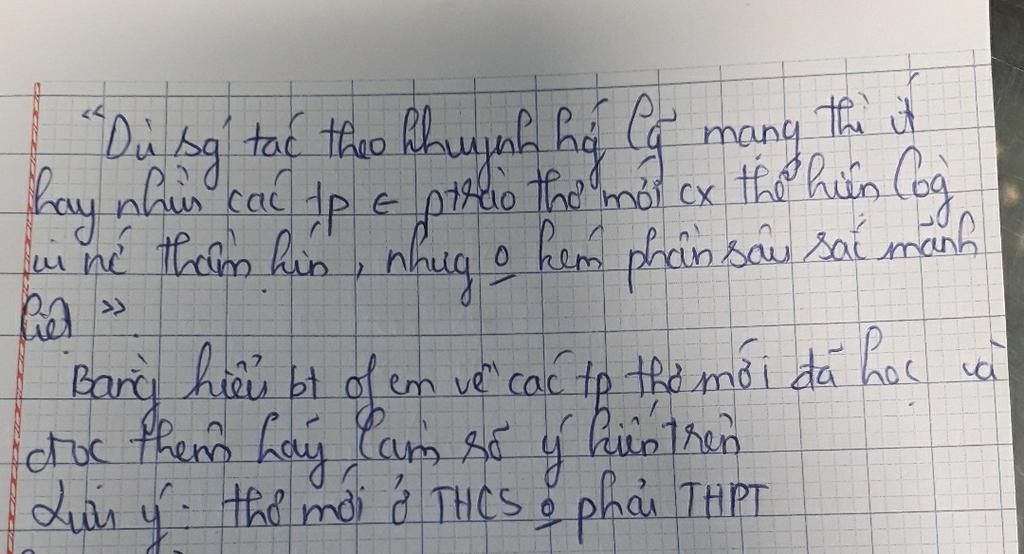 "Dù sg tác theo khuynh hg lg mạng thì ít
hay nhìu các tp ∈ ptrào thơ mới cx thể hiện lòg
iu nc thầm kín, nhưg o kém phần sâu sắc mãnh
liệt"
Bằng hiểu bt of em về các tp thơ mới đã học và
đọc thêm hãy làm rõ ý kiến trên
Lưu ý: thơ mới ở THCS o phải THPT